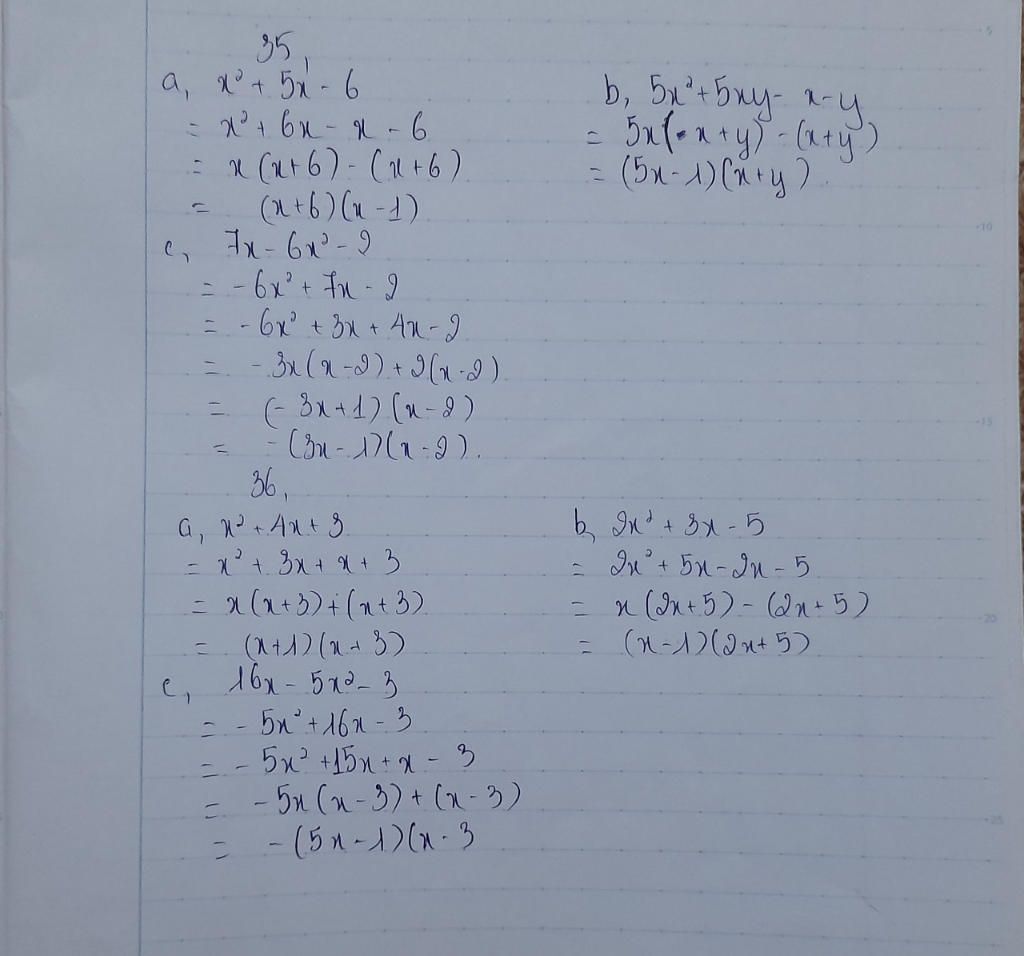 35,
a, x² + 5x - 6
= x² + 6x - x - 6
= x (x+6) - (x+6)
= (x+6)(x-1)
b, 5x² + 5xy - x - y
= 5x(x+y) - (x+y)
= (5x-1)(x+y).
c, 7x - 6x² - 2
= -6x² + 7x - 2
= -6x² + 3x + 4x - 2
= -3x(x-2) + 2(x-2)
= (-3x+1)(x-2)
= -(3x-1)(x-2).
36,
a, x² + 4x + 3
= x² + 3x + x + 3
= x(x+3) + (x+3)
= (x+1)(x+3)
b, 2x² + 3x - 5
= 2x² + 5x - 2x - 5
= x(2x+5) - (2x+5)
= (x-1)(2x+5)
c, 16x - 5x² - 3
= -5x² + 16x - 3
= -5x² + 15x + x - 3
= -5x(x-3) + (x-3)
= -(5x-1)(x-3